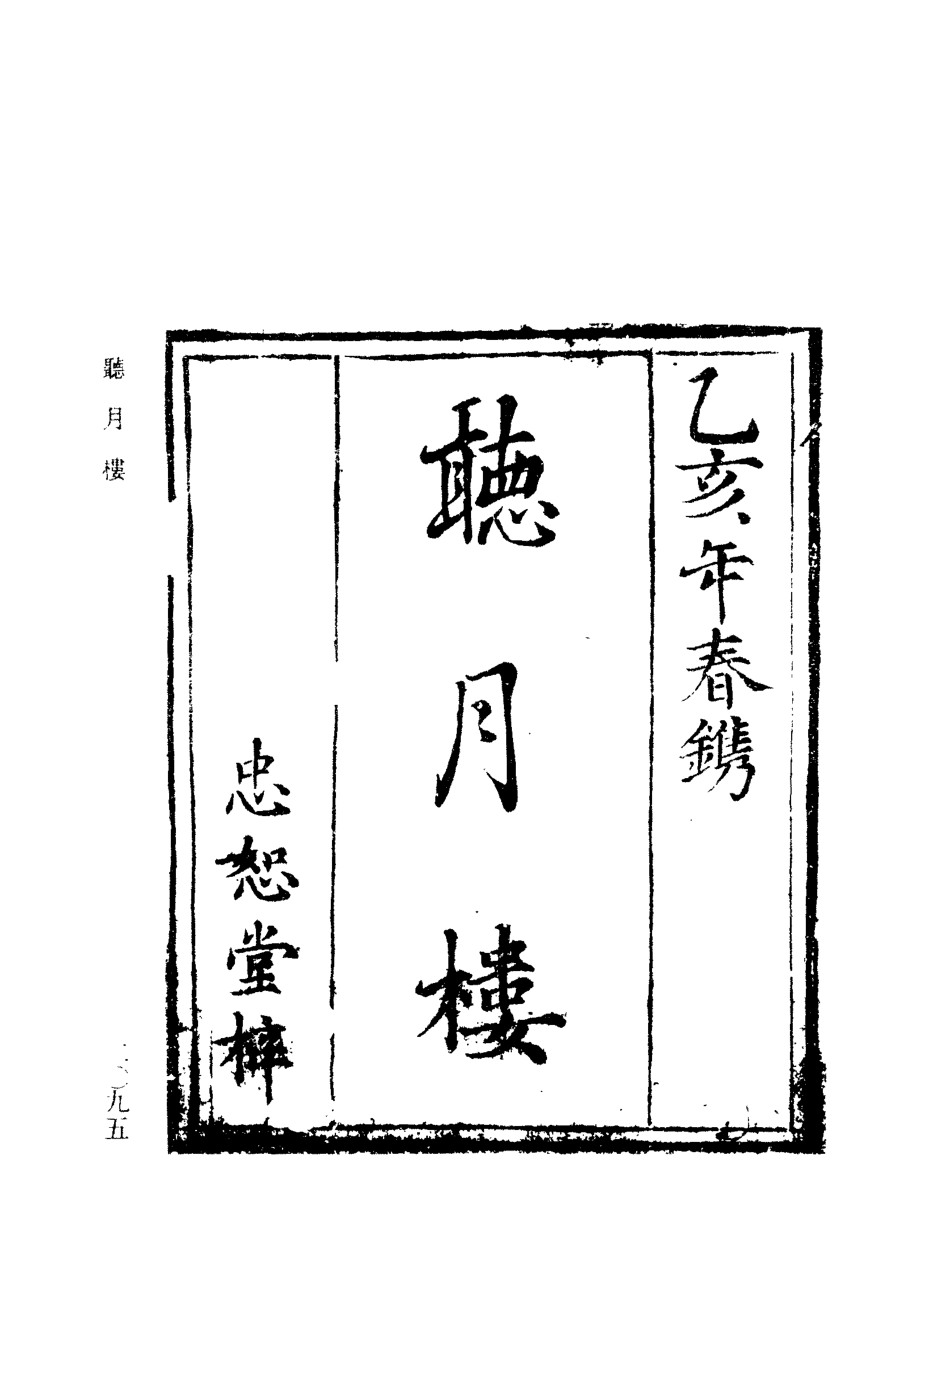 乙亥年春鐫
聽月樓
忠恕堂梓
聽月樓
〇九五